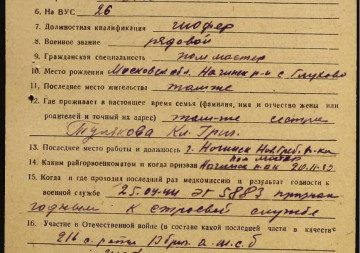 6. На ВУС 26
7. Должностная квалификация шофер
8. Военное звание рядовой
9. Гражданская специальность пом мастер
10. Место рождения Московск обл. Ногинск р-н с. Глухово
11. Последнее место жительства там же
12. Где проживает в настоящее время семья (фамилия, имя и отчество жены или
родителей и точный их адрес) там-же сестра
Тулякова Кл. Григ.
13. Последнее место работы и должность г. Ногинск
пом мастер
14. Каким райгорвоенкоматом и когда призван Ногинск РВК 20.11.39
15. Когда и где проходил последний раз медкомиссию и результат годности к
военной службе 25.04.44 ЭГ 5883 признан
годным к строевой службе
16. Участие в Отечественной войне (в составе какой последней части в качестве
216 с. рота 13 бриг.